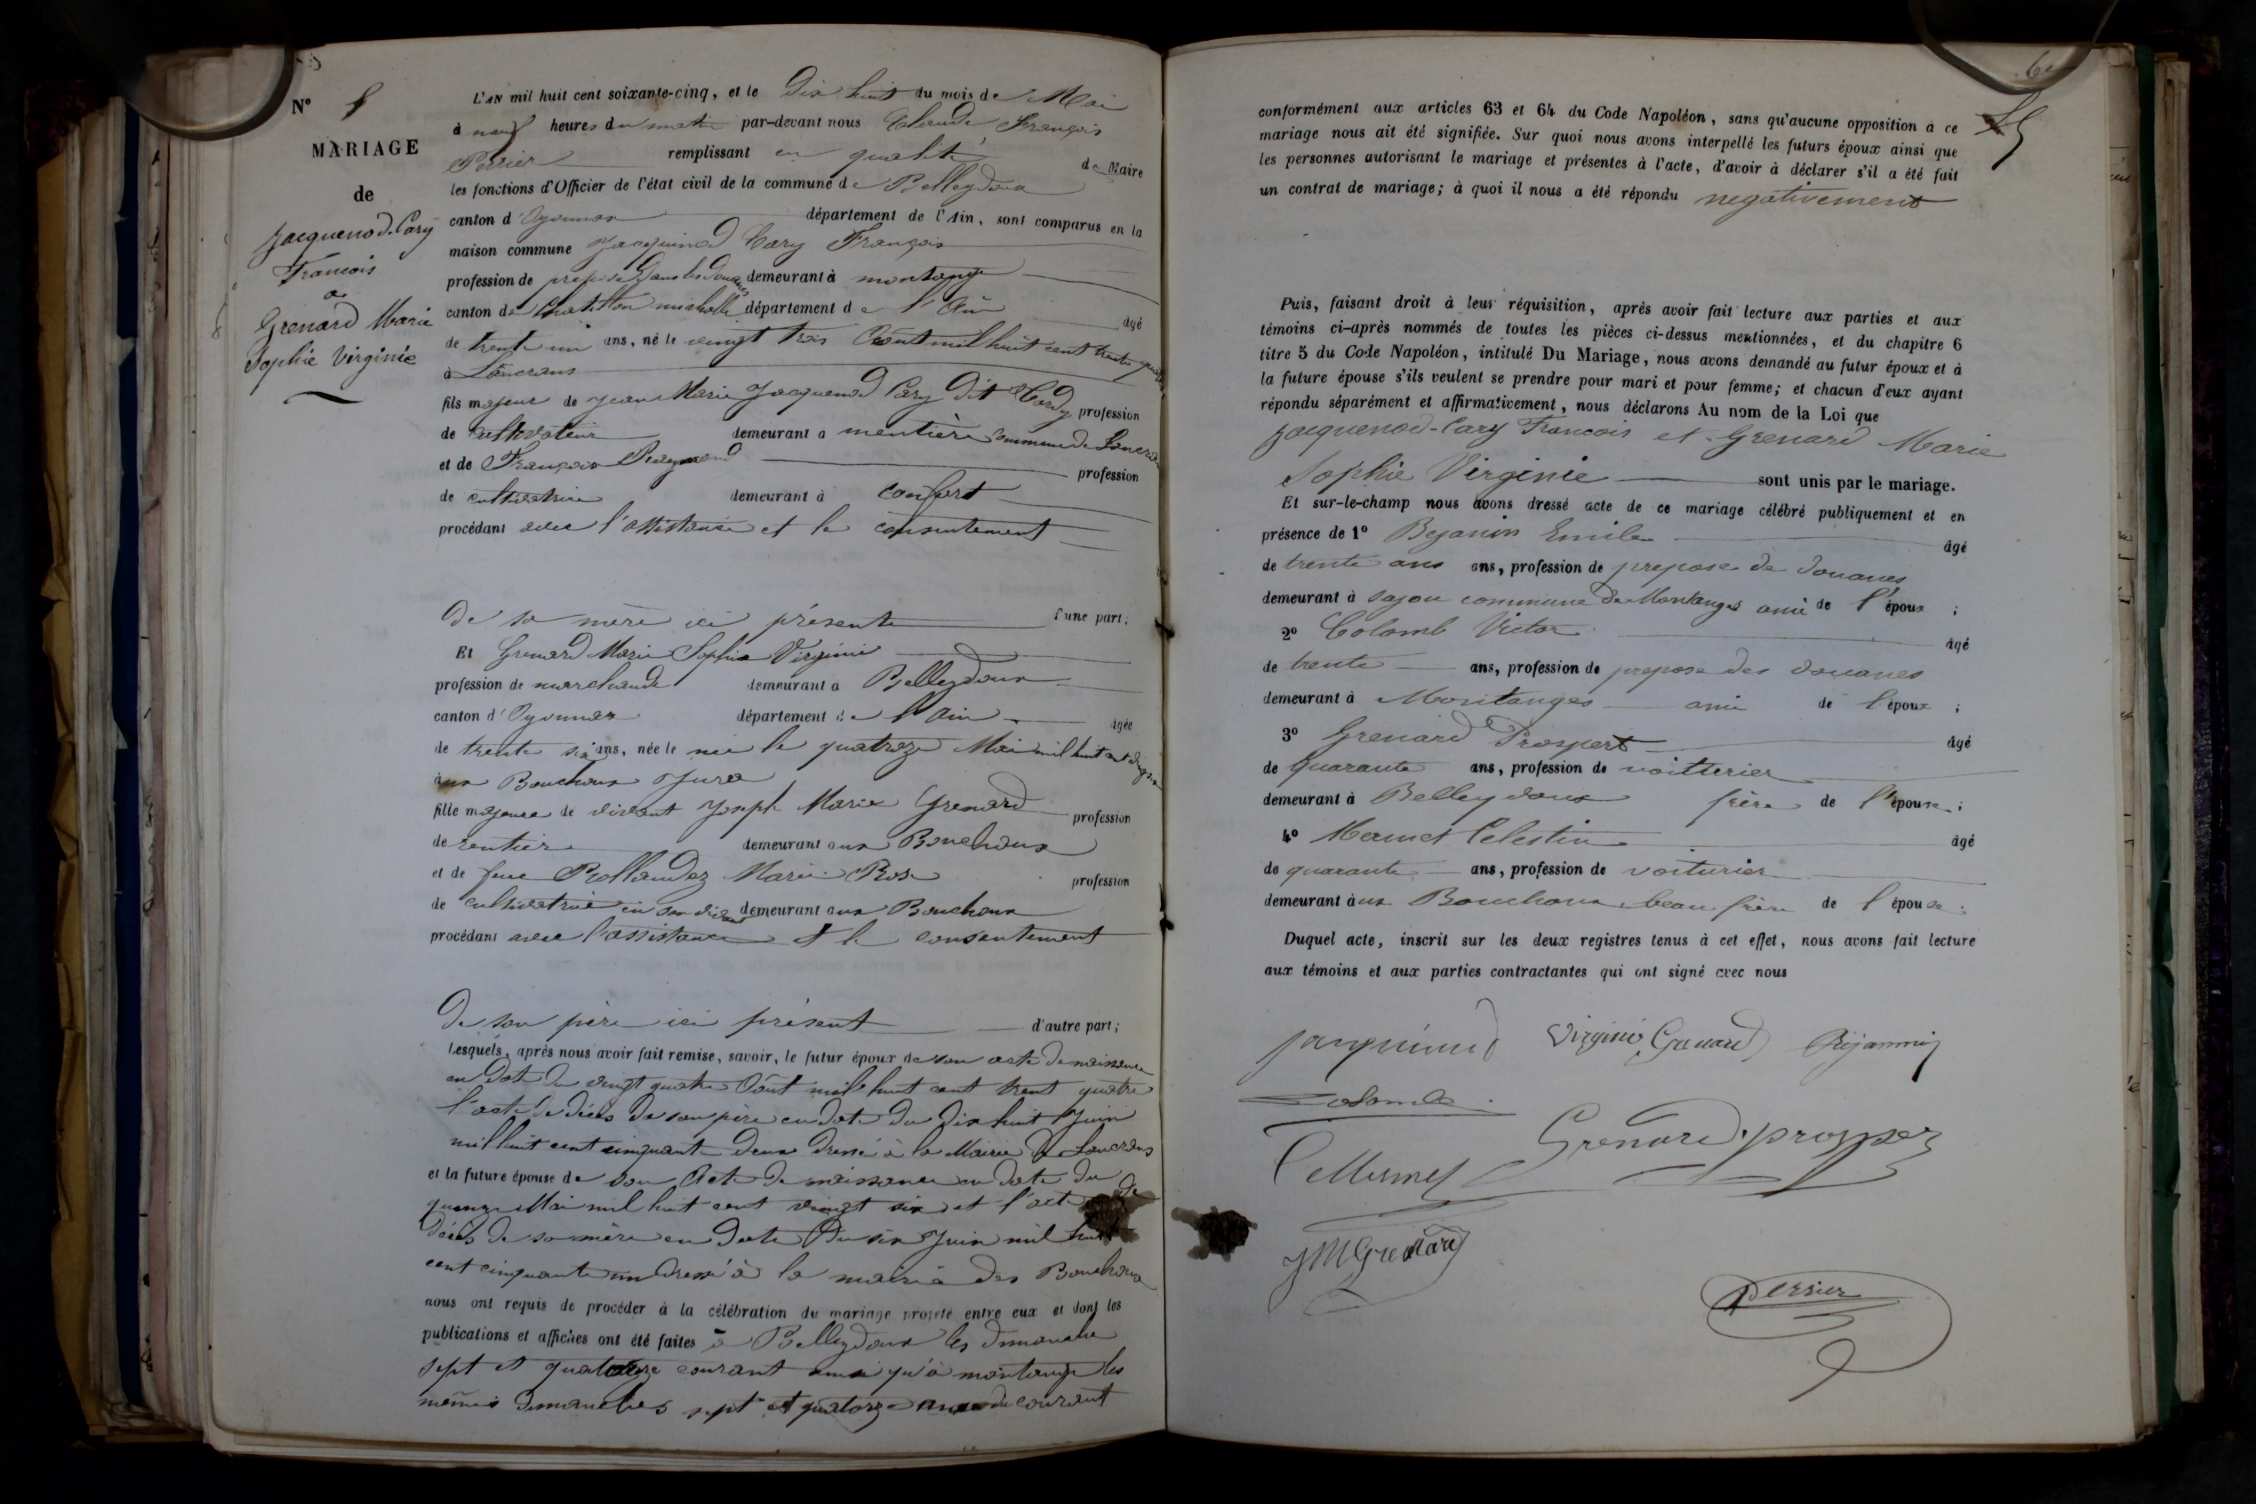 N°
MARIAGE
de
Jacquenod-Cary
Francois
a
Grenard Marie
Sophie Virginie
L'AN mil huit cent soixante-cinq, et le Dix huit du mois de Mai
à neuf heures du matin par-devant nous Claude François
Perrier remplissant en qualité de Maire
les fonctions d'Officier de l'état civil de la commune de Belleydoux
canton d'Oyonnax département de l'Ain, sont comparus en la
maison commune Jacquinod Cary François
profession de préposé dans les Douanes demeurant à montange
canton de Chatillon michaille département de l'Ain âgé
de trente un ans, né le vingt trois Août mil huit cent trente quatre
à Lancrans
fils majeur de Jean Marie Jacquenod Cary Dit profession
de cultivateur demeurant a mentière commune de Lancrans
et de Françoise profession
de cultivatrice demeurant à confort
procédant avec l'assistance et le consentement
De sa mère ici présente d'une part;
Et Grenard Marie Sophie Virginie
profession de marchande demeurant a Belleydoux
canton d'Oyonnax département de l'Ain âgée
de trente six ans, née le née le quatorze Mai mil huit cent
aux Bouchoux Jura
fille majeure de vivant Joseph Marie Grenard profession
de rentier demeurant aux Bouchoux
et de feue Rollandez Marie Rose profession
de cultivatrice en son vivant demeurant aux Bouchoux
procédant avec l'assistance et le consentement
De son père ici présent d'autre part;
Lesquels, après nous avoir fait remise, savoir, le futur époux de son acte de naissance
en date du vingt quatre Août mil huit cent trent quatre
l'acte de décès de son père en date du dix huit Juin
mil huit cent cinquante deux dressé à la Mairie de Lancrans
et la future épouse de son Acte de naissance en date du
quinze Mai mil huit cent vingt six et l'acte de
décès de sa mère en date du six Juin mil huit
cent cinquante un dressé à la mairie des Bouchoux
nous ont requis de procéder à la célébration du mariage projeté entre eux et dont les
publications et affiches ont été faites à Belleydoux les dimanche
sept et quatorze courant ainsi qu'à montange les
mêmes dimanches sept et quatorze courant
conformément aux articles 63 et 64 du Code Napoléon, sans qu'aucune opposition a ce
mariage nous ait été signifiée. Sur quoi nous avons interpellé les futurs époux ainsi que
les personnes autorisant le mariage et présentes à l'acte, d'avoir à déclarer s'il a été fait
un contrat de mariage; à quoi il nous a été répondu negativement
Puis, faisant droit à leur réquisition, après avoir fait lecture aux parties et aux
témoins ci-après nommés de toutes les pièces ci-dessus mentionnées, et du chapitre 6
titre 5 du Code Napoléon, intitulé Du Mariage, nous avons demandé au futur époux et à
la future épouse s'ils veulent se prendre pour mari et pour femme; et chacun d'eux ayant
répondu séparément et affirmativement, nous déclarons Au nom de la Loi que
Jacquenod-Cary Francois et Grenard Marie
Sophie Virginie sont unis par le mariage.
Et sur-le-champ nous avons dressé acte de ce mariage célébré publiquement et en
présence de 1° Bejanin Emile âgé
de trente ans ans, profession de prepose de douanes
demeurant à commune de Montanges ami de l'époux ;
2° Colomb Victor âgé
de trente ans, profession de prepose des douanes
demeurant à Montanges ami de l'époux ;
3° Grenard Prosper âgé
de quarante ans, profession de voitterier
demeurant à Belleydoux frère de l'épouse ;
4° Mermet Celestin âgé
de quarante ans, profession de voiturier
demeurant à ux Bouchoux beau frère de l'épouse.
Duquel acte, inscrit sur les deux registres tenus à cet effet, nous avons fait lecture
aux témoins et aux parties contractantes qui ont signé avec nous
Jacquinod Virginie Grenard Bejannin
Colomb
Grenard prosper
C Mermet
JM Grenard
Perrier